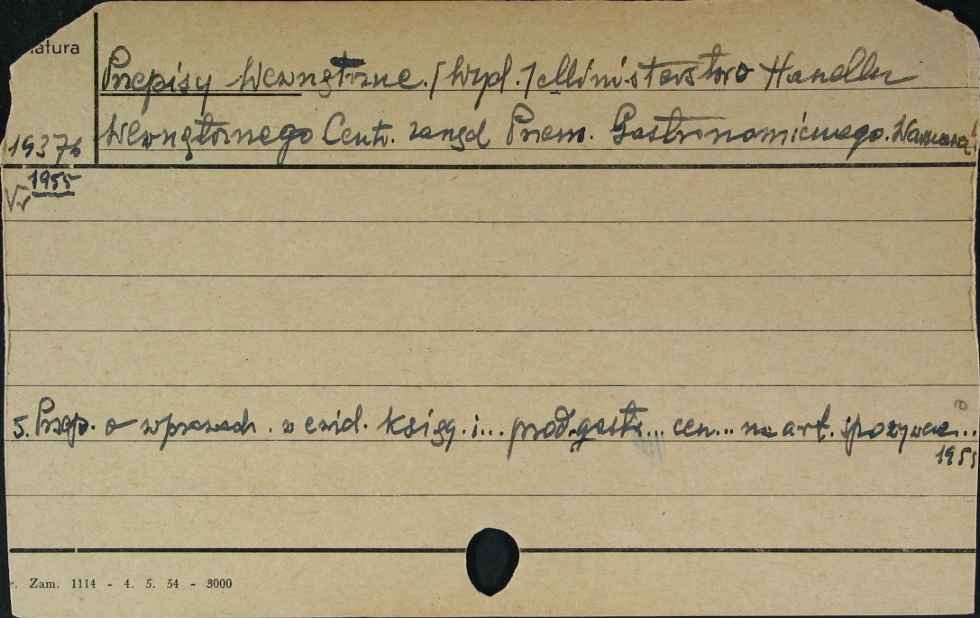 natura
Przepisy Wewnętrzne. / Wyd. / Ministerstwo Handlu
19376 Wewnętrznego Centr. Zarząd Przem. Gastronomicznego. Warszawa
1955
5. Przep. o wprowadz. w ewid. księg. i... prod. gastr... cen... na art. spożywcz...
1955
Zam. 1114 - 4. 5. 54 - 3000